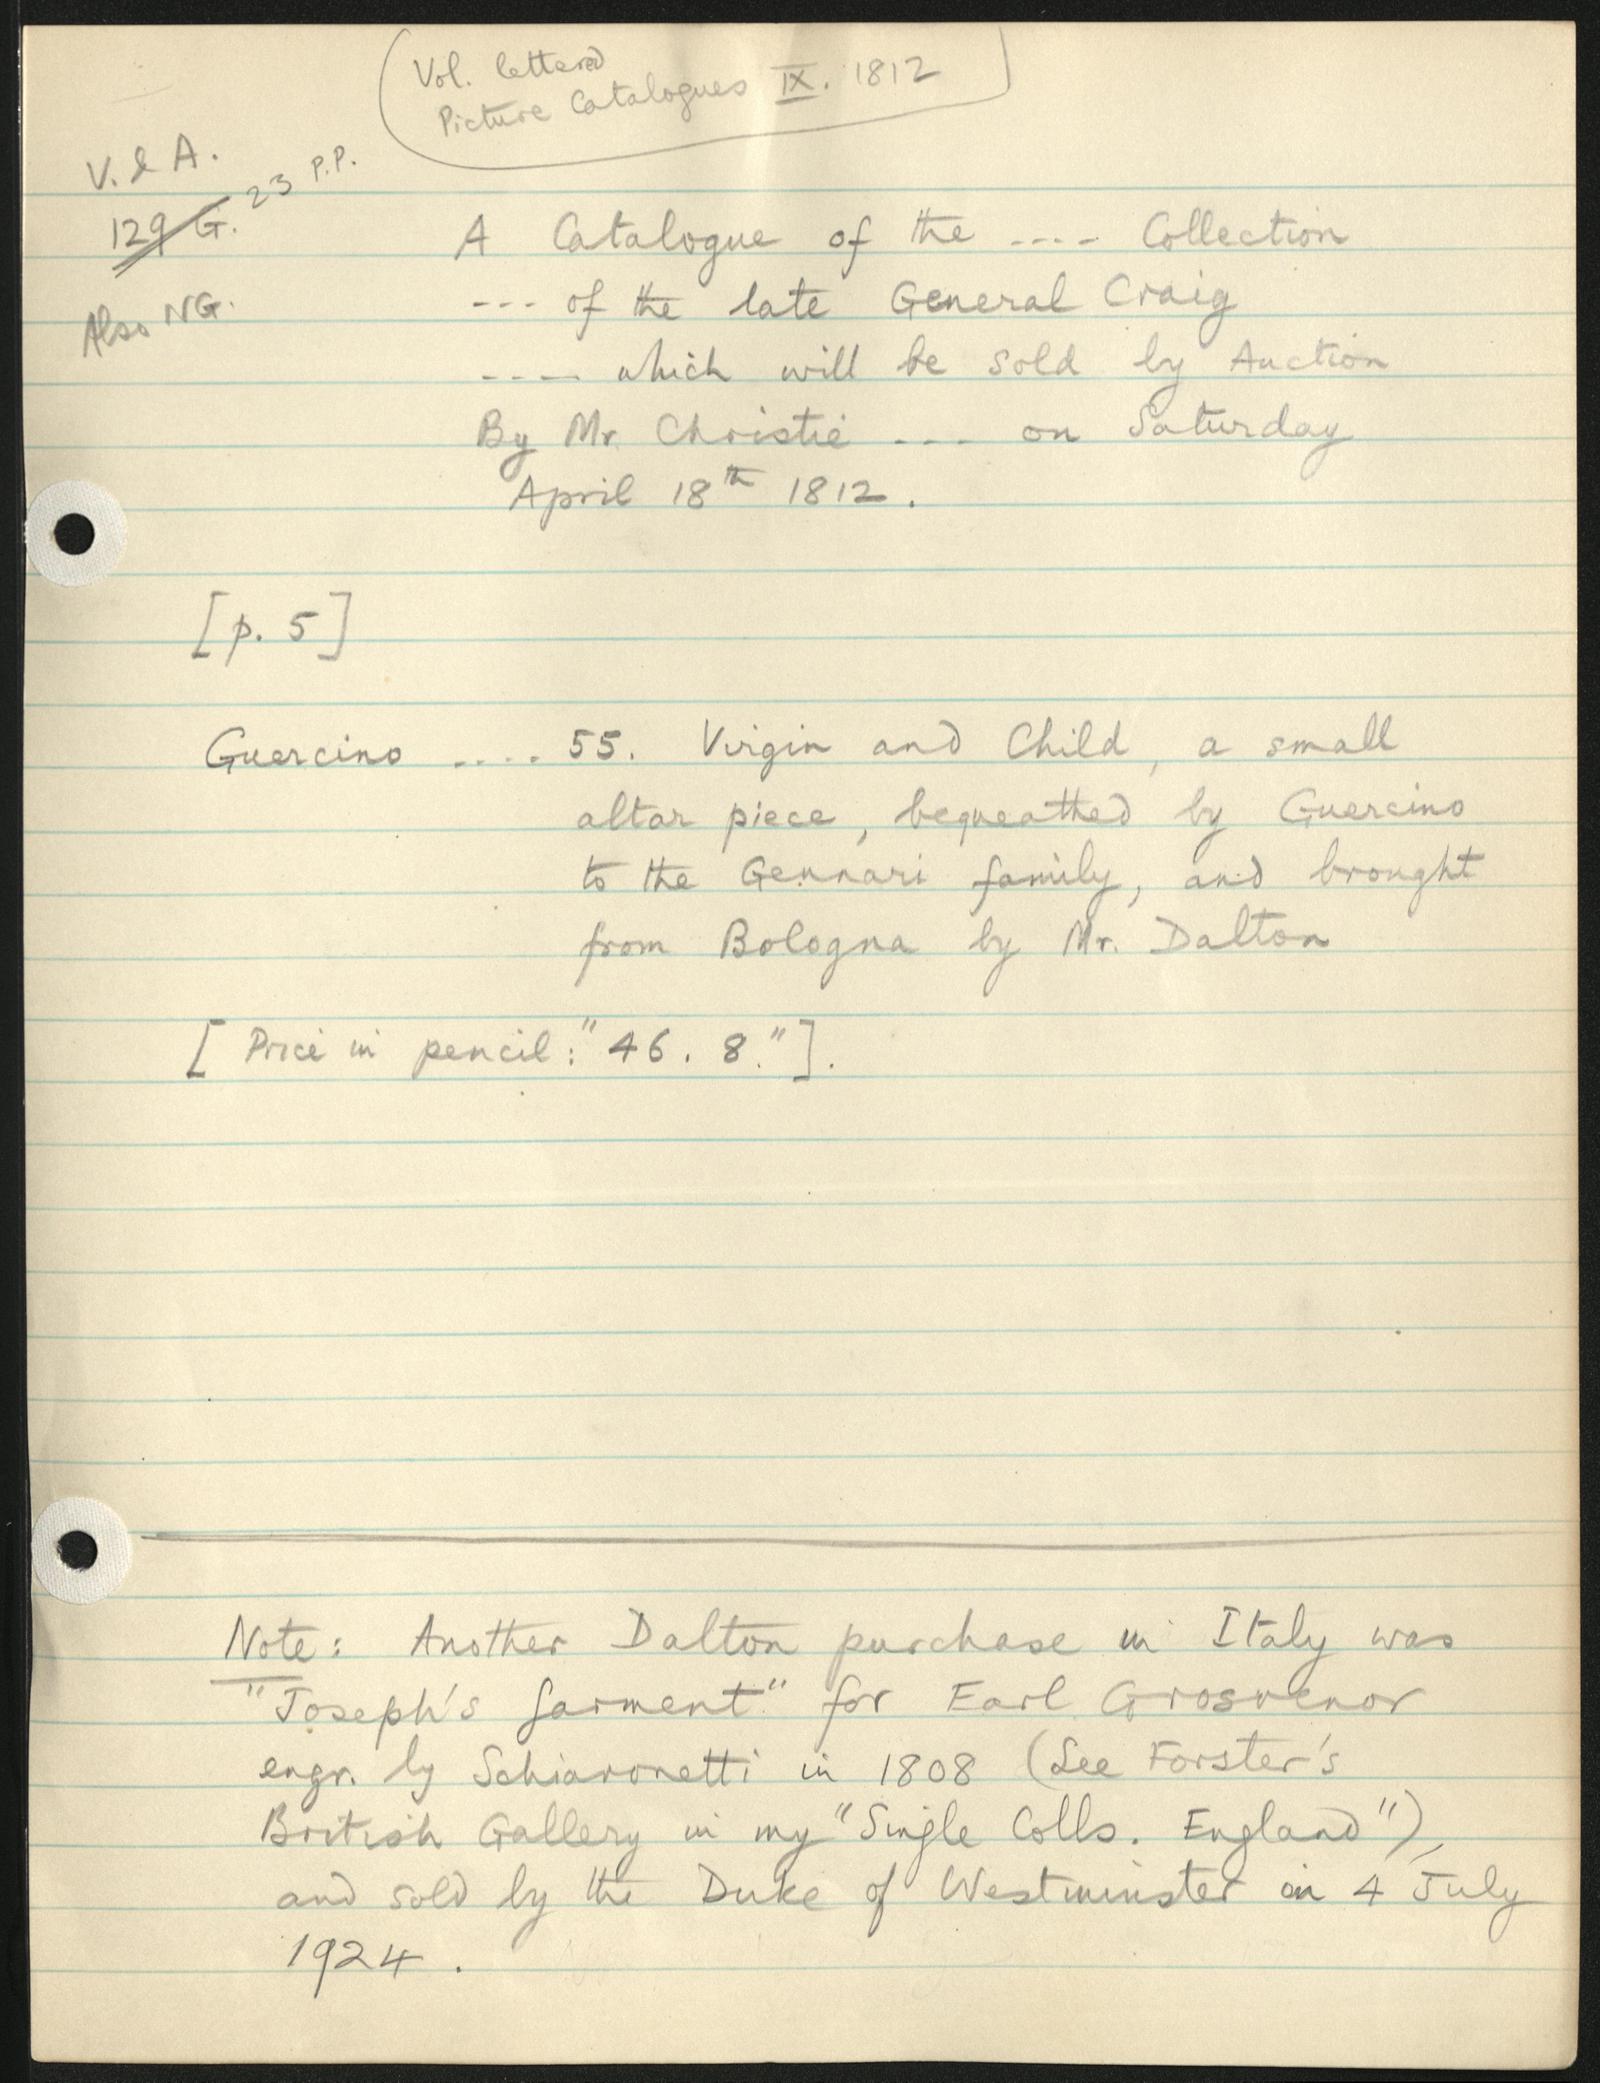 Vol. lettered
Picture Catalogues IX. 1812
V. & A.
129 G. 23 P.P.
Also NG.
A Catalogue of the .... Collection
--- of the late General Craig
---- which will be sold by Auction
By Mr. Christie --- on Saturday
April 18th 1812.
[p. 5]
Guercino .... 55. Virgin and Child, a small
altar piece, bequeathed by Guercino
to the Gennari family, and brought
from Bologna by Mr. Dalton
[Price in pencil: "46. 8."].
Note: Another Dalton purchase in Italy was
"Joseph's garment" for Earl Grosvenor
engr. by Schiavonetti in 1808 (See Forster's
British Gallery in my "Single Colls. England"),
and sold by the Duke of Westminster in 4 July
1924.